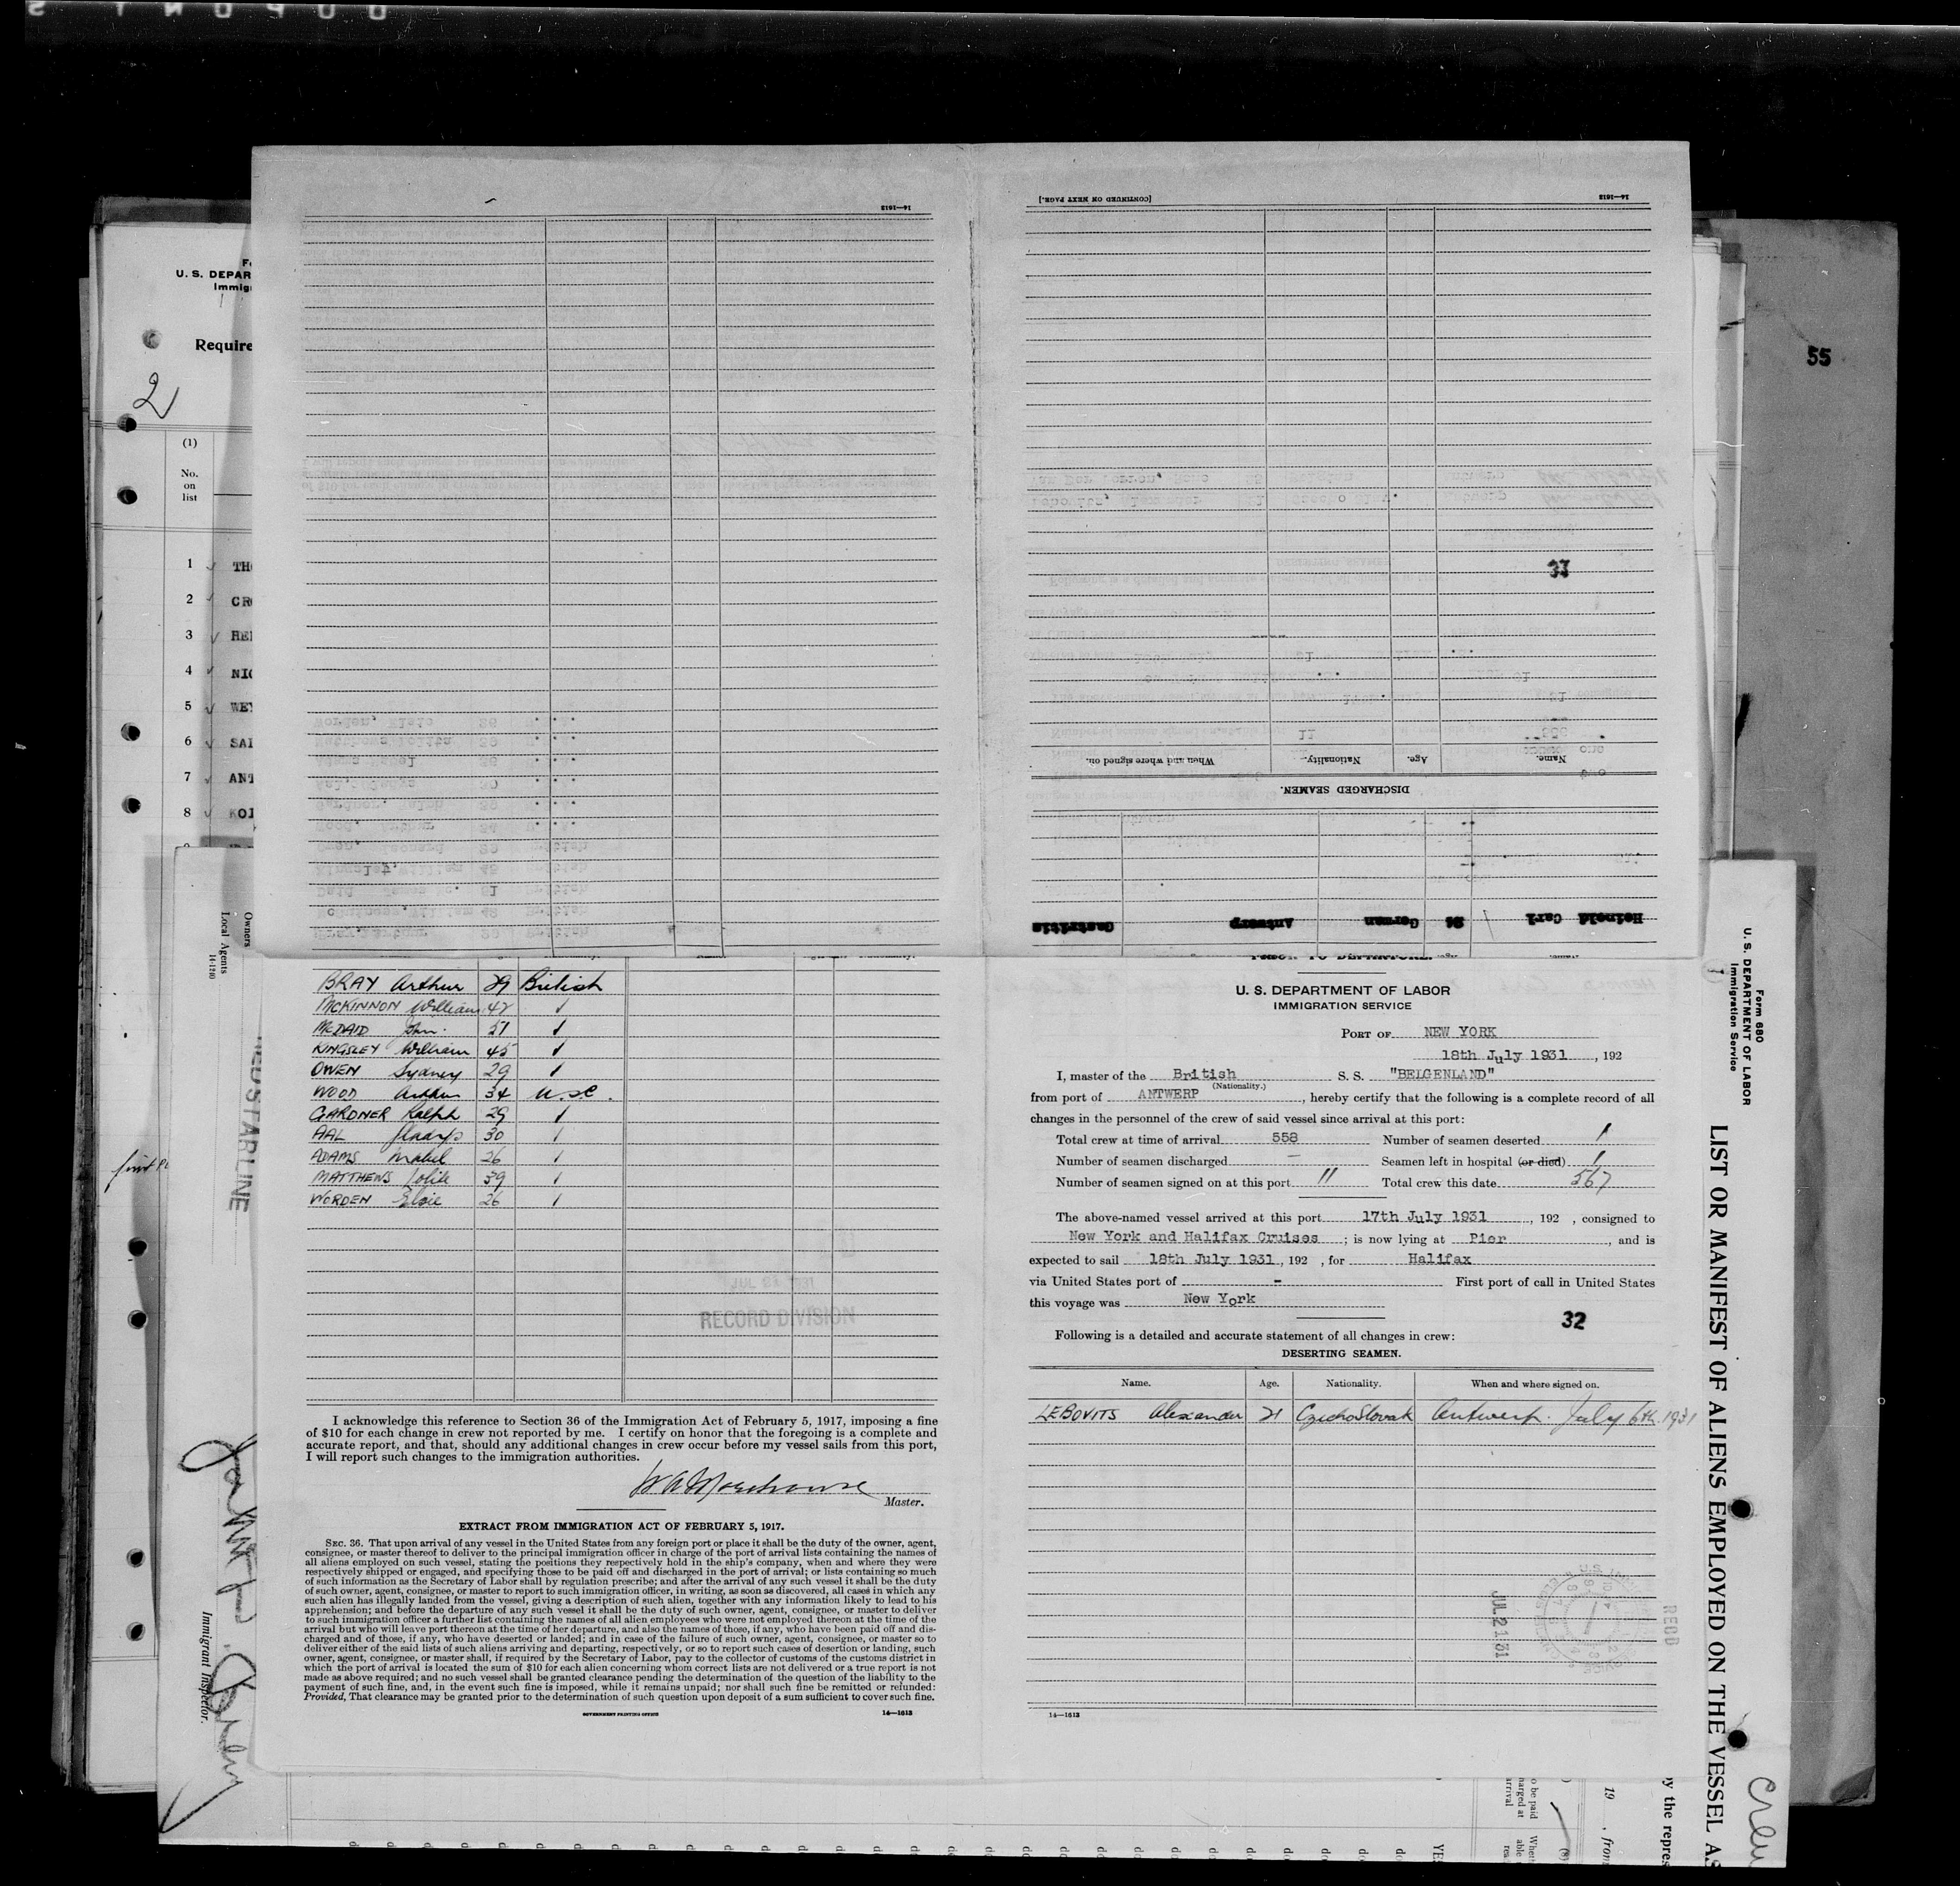 55
U. S. DEPAR
Immig
Require
2
(1)
No.
on
list
1 TH
2 CR
3 HE
4 NI
5 WE
6 SA
7 ANT
8 KO
Owners
Local Agents
14-1240
RED STAR LINE
Immigrant Inspector.
14—1613
[CONTINUED ON NEXT PAGE.]
14—1613
37
Name. Age. Nationality. When and where signed on.
DISCHARGED SEAMEN.
Heinold Carl 24 German Antwerp Gastritis
BRAY Arthur 29 British
McKINNON William 42 ✓
McDAID John. 51 ✓
KINGSLEY William 45 ✓
OWEN Sydney 29 ✓
WOOD Arthur 34 U.S.C.
GARDNER Ralph 29 ✓
AAL Gladys 30 ✓
ADAMS Mabel 26 ✓
MATTHEWS Lolita 39 ✓
WORDEN Elsie 26 ✓
JUL 21 1931
RECORD DIVISION
I acknowledge this reference to Section 36 of the Immigration Act of February 5, 1917, imposing a fine
of $10 for each change in crew not reported by me. I certify on honor that the foregoing is a complete and
accurate report, and that, should any additional changes in crew occur before my vessel sails from this port,
I will report such changes to the immigration authorities.
W A Morehouse
Master.
EXTRACT FROM IMMIGRATION ACT OF FEBRUARY 5, 1917.
SEC. 36. That upon arrival of any vessel in the United States from any foreign port or place it shall be the duty of the owner, agent,
consignee, or master thereof to deliver to the principal immigration officer in charge of the port of arrival lists containing the names of
all aliens employed on such vessel, stating the positions they respectively hold in the ship's company, when and where they were
respectively shipped or engaged, and specifying those to be paid off and discharged in the port of arrival; or lists containing so much
of such information as the Secretary of Labor shall by regulation prescribe; and after the arrival of any such vessel it shall be the duty
of such owner, agent, consignee, or master to report to such immigration officer, in writing, as soon as discovered, all cases in which any
such alien has illegally landed from the vessel, giving a description of such alien, together with any information likely to lead to his
apprehension; and before the departure of any such vessel it shall be the duty of such owner, agent, consignee, or master to deliver
to such immigration officer a further list containing the names of all alien employees who were not employed thereon at the time of the
arrival but who will leave port thereon at the time of her departure, and also the names of those, if any, who have been paid off and dis-
charged and of those, if any, who have deserted or landed; and in case of the failure of such owner, agent, consignee, or master so to
deliver either of the said lists of such aliens arriving and departing, respectively, or so to report such cases of desertion or landing, such
owner, agent, consignee, or master shall, if required by the Secretary of Labor, pay to the collector of customs of the customs district in
which the port of arrival is located the sum of $10 for each alien concerning whom correct lists are not delivered or a true report is not
made as above required; and no such vessel shall be granted clearance pending the determination of the question of the liability to the
payment of such fine, and, in the event such fine is imposed, while it remains unpaid; nor shall such fine be remitted or refunded:
Provided, That clearance may be granted prior to the determination of such question upon deposit of a sum sufficient to cover such fine.
GOVERNMENT PRINTING OFFICE
14—1613
U. S. DEPARTMENT OF LABOR
IMMIGRATION SERVICE
PORT OF NEW YORK
18th July 1931, 192
I, master of the British S. S. "BELGENLAND"
(Nationality.)
from port of ANTWERP, hereby certify that the following is a complete record of all
changes in the personnel of the crew of said vessel since arrival at this port:
Total crew at time of arrival 558 Number of seamen deserted 1
Number of seamen discharged — Seamen left in hospital (or died) 1
Number of seamen signed on at this port 11 Total crew this date 567
The above-named vessel arrived at this port 17th July 1931, 192 , consigned to
New York and Halifax Cruises ; is now lying at Pier, and is
expected to sail 18th July 1931, 192 , for Halifax
via United States port of - First port of call in United States
this voyage was New York
32
Following is a detailed and accurate statement of all changes in crew:
DESERTING SEAMEN.
Name. Age. Nationality. When and where signed on.
LEBOVITS Alexander 21 CzechoSlovak Antwerp. July 6th. 1931
JUL 21 31
RECD
14—1613
Form 680
U. S. DEPARTMENT OF LABOR
Immigration Service
LIST OR MANIFEST OF ALIENS EMPLOYED ON THE VESSEL AS
y the repres
19 , from
Crew